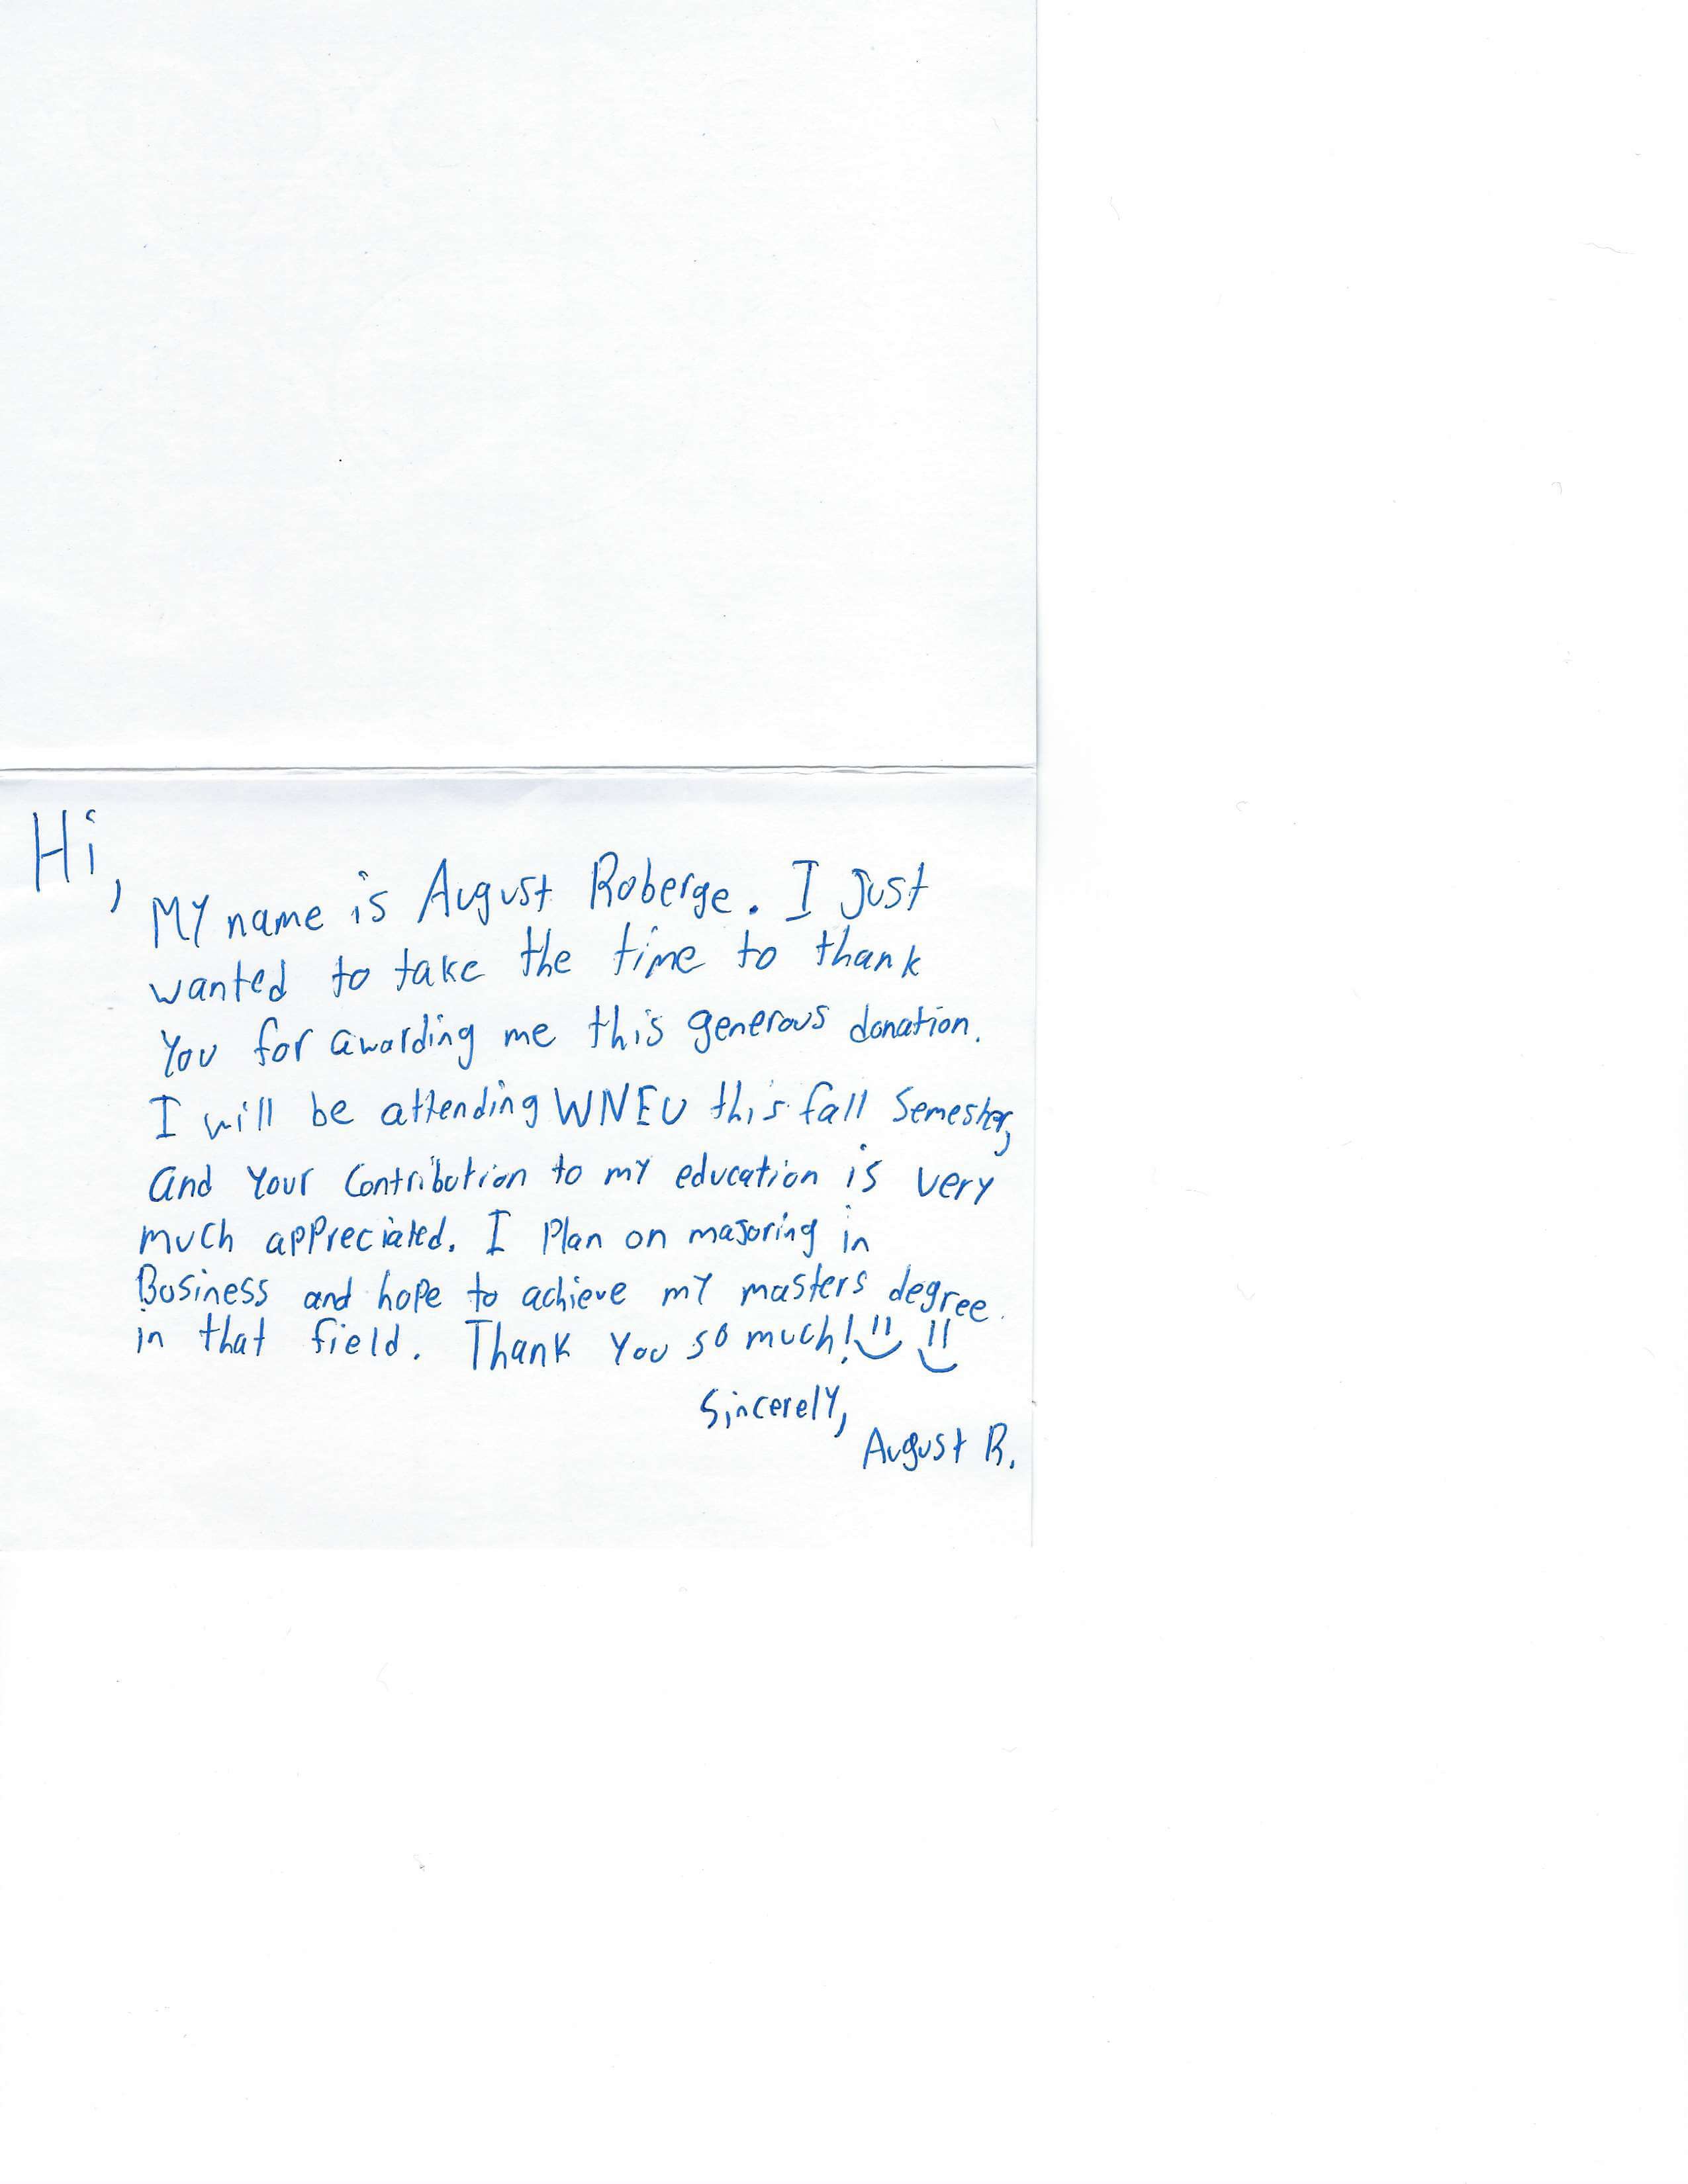 Hi,
My name is August Roberge. I just
wanted to take the time to thank
you for awarding me this generous donation.
I will be attending WNEU this fall semester,
and your contribution to my education is very
much appreciated. I plan on majoring in
Business and hope to achieve my masters degree
in that field. Thank you so much!
Sincerely,
August R.